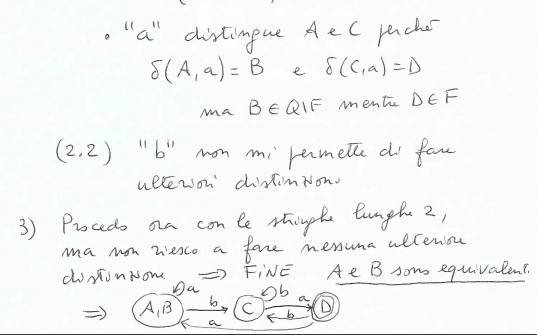 • "a" distingue A e C perché
δ(A,a)=B e δ(C,a)=D
ma B∈Q\F mentre D∈F
(2.2) "b" non mi permette di fare
ulteriori distinzioni
3) Procedo ora con le stringhe lunghe 2,
ma non riesco a fare nessuna ulteriore
distinzione ⇒ FINE A e B sono equivalenti.
a b
⇒ A,B b C a D
a b